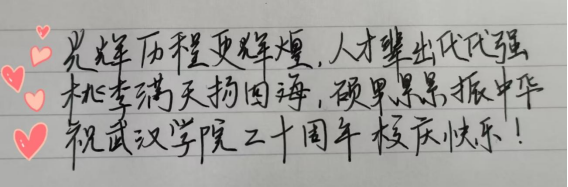 光辉历程更辉煌，人才辈出代代强
桃李满天扬四海，硕果累累振中华
祝武汉学院二十周年校庆快乐！